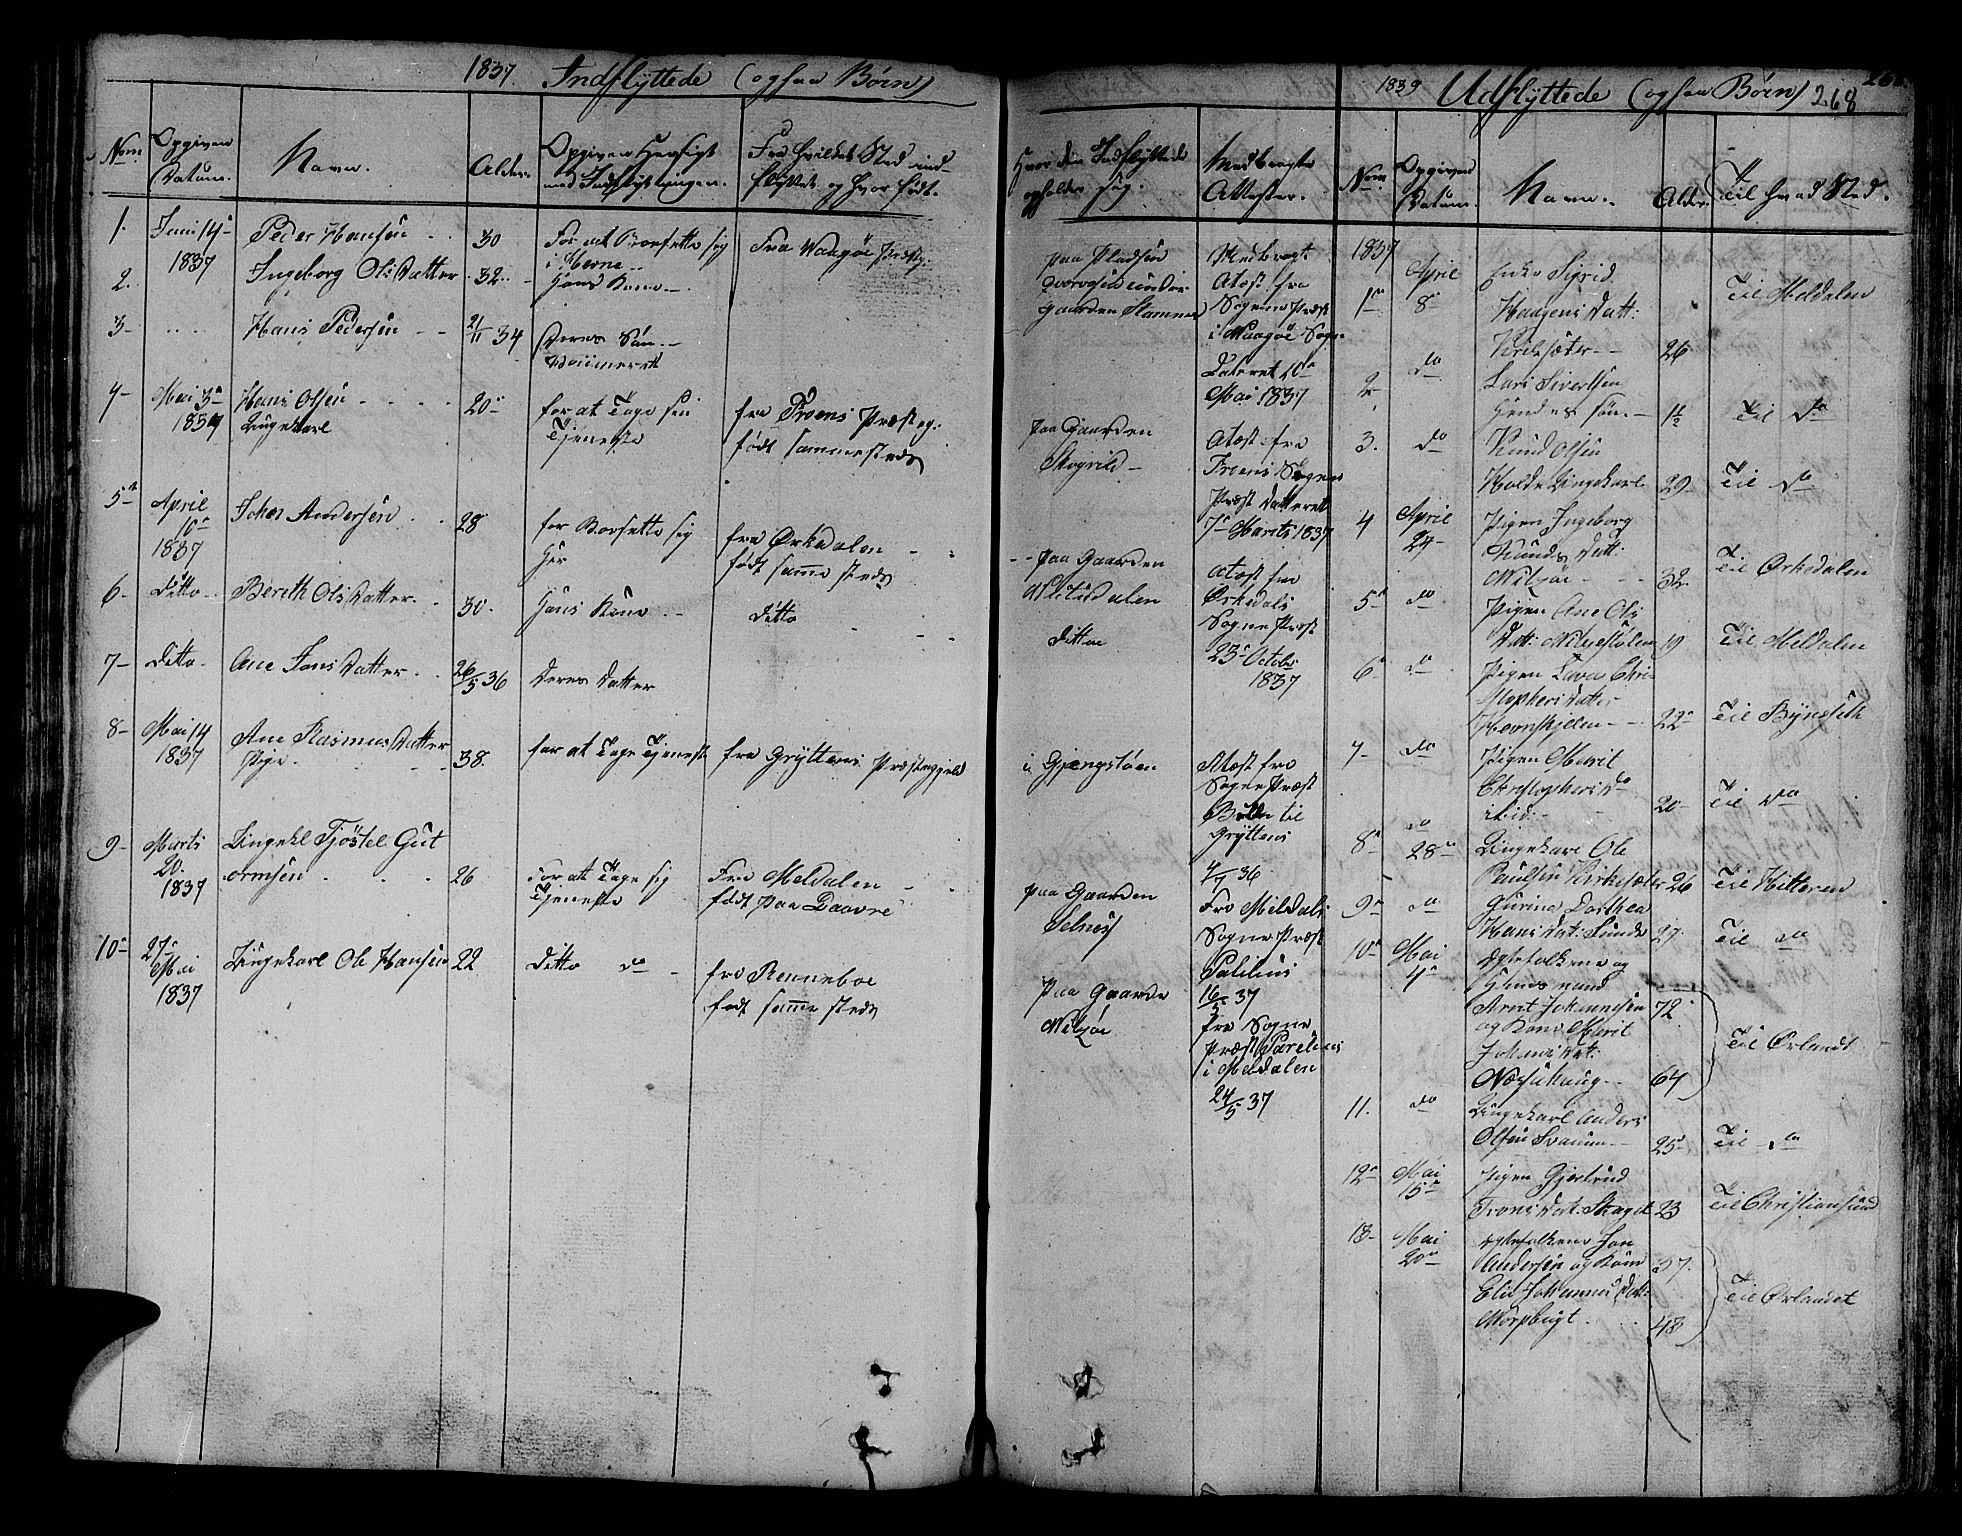 1837. Indflyttede (ogsaa Børn)
Nom. Opgiven Datum. Navn. Alder. Opgiven Hensigt med Indflytningen. Fra hvilket Sted indflyttet og hvor født. Hvor den Indflyttede opholder sig. Medbragte Attester.
1. Juni 14 1837 Peder Hansen 30 For at bosette sig i Herne Fra Waagøe Præstg: paa Pladsen under gaarden Stamnes Medbragt Atest fra Sogne Præst i Waagøe Sogn Dateret 10de Mai 1837
2. Ingeborg Olsdatter 32 Hans Kone
3 Hans Pedersen 21/11 34 Deres Søn
4 Mai 3 1837 Hans Olsen Ungekarl 20 for at Tage sin Tjeneste fra Froens Præsteg: født sammesteds paa Gaarden Atest fra Froens Sogne Præst Datteret 7 Marts 1837
5 April 10 1837 Johan Andersen 28 for Bosette sig her fra Ørkedalen født samme steds paa Gaarden Atest fra Ørkedals Sogne Præst 23 Octobr 1837
6 Ditto Bereth Olsdatter 30 Hans Kone Ditto Ditto
7 Ditto Ane Jonsdatter 26/5 36 Deres Datter
8 Mai 14 1837 Ane Rasmusdatter Pige 38. for at Tage Tjeneste fra Gryttens Præstegjeld i Gjengstøen Atest fra Sogne Præst til Gryttens 36
9 Marts 20. 1837 Ungekl Tjøstel Gutormsen 26 For at Tage sig Tjeneste Fra Meldalen født paa Gaarden Selnes Fra Meldals Sogne Præst 37
10 27 Mai 1837 Ungekarl Ole Hansen 22 Ditto do fra Renneboe født samme steds paa Gaarde fra Sogne Præst i Meldalen 24/5 37
1839 Udflyttede (ogsaa Børn) 268
Nom. Opgiven Datum. Navn. Alder. Til hvad Sted.
1837
1 April 8 Enke Sigrid Haagensdatt: 26 Til Meldalen
2 do Lars Sivertsen Hendes søn 1½ Til do
3. do Knud Olsen Ungekarl 29 Til do
4 April 24 Pigen Ingeborg Knudsdatt: 32 Til Ørkedalen
5 do Pigen Ane Olsdatt: 19 Til Meldalen
6 do Pigen Christophersdatter 22 Til Bynæset
7 do Pigen Marit Christophersd ibid: 20 Til do
8 do 28 Ungekarl Ole Paulsen Kirksæter 26 Til Hitteren
9 do Gurina Dorthea Hansdat: Sunde 27 Til do
10 Mai 4 Ægtefolkene og Huusmand Arnt Johannesen 72 og Kone Marit 64 Til Ørlandt
11. do Ungekarl Anders Olsen Svanem 25 Til do
12 Mai 15 Pigen Gjertrud 23 Til Christiansund
13 Mai 20 Ægtefolkene Jon Andersen og Kone 37. Johannesdat: 48 Til Ørlandet